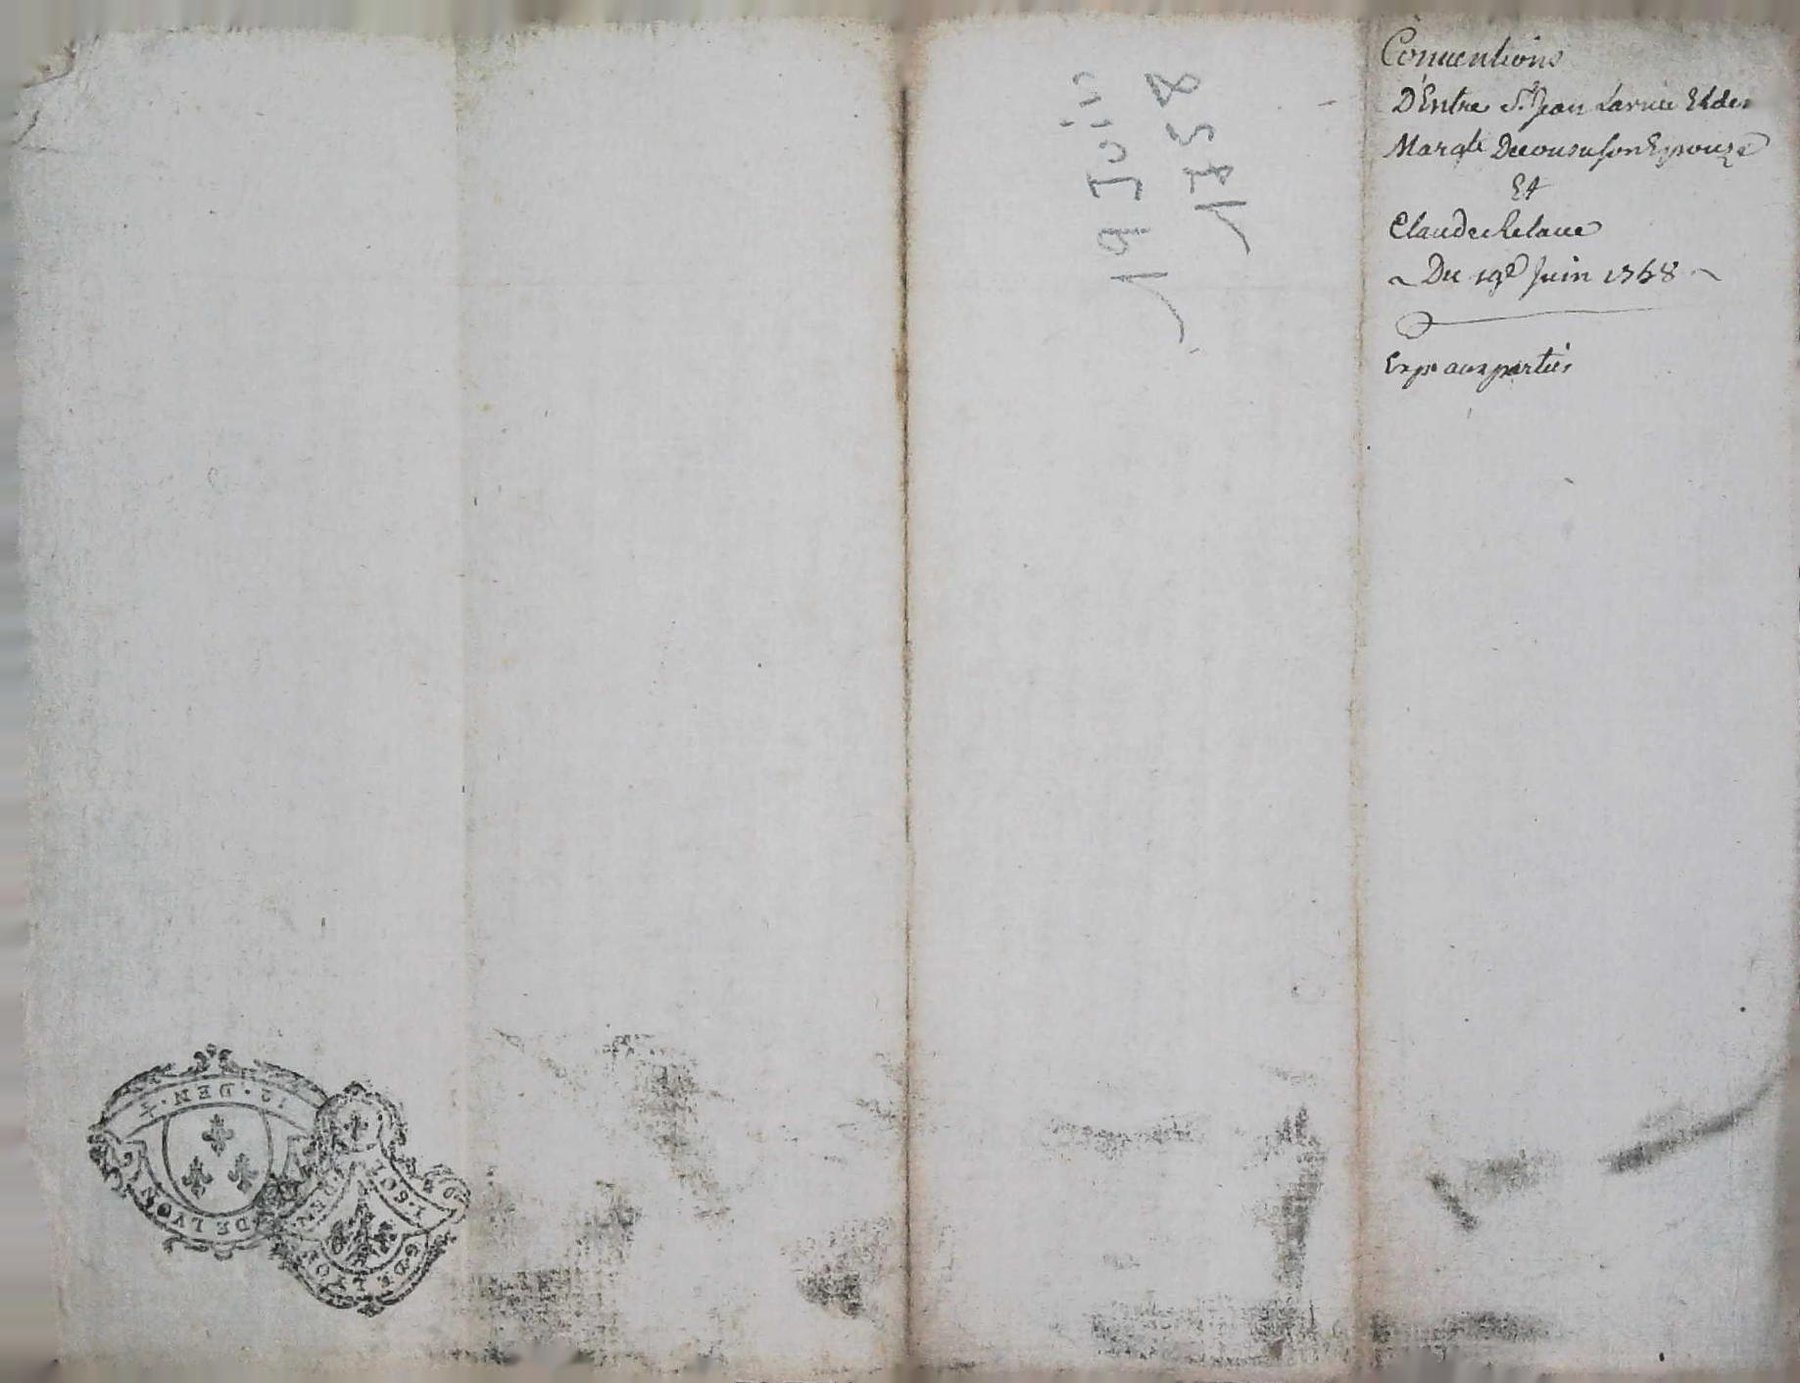 Conventions
D'Entre Sr. Jean Larue Et de
Margte Decousu son Epouze
Et
Claude Relave
~ Du 19e Juin 1758 ~
Expe aux parties
19 Juin
1758
12 · DEN · 4
G DE LYON
1 · SOL
DEN
G · DE LYO